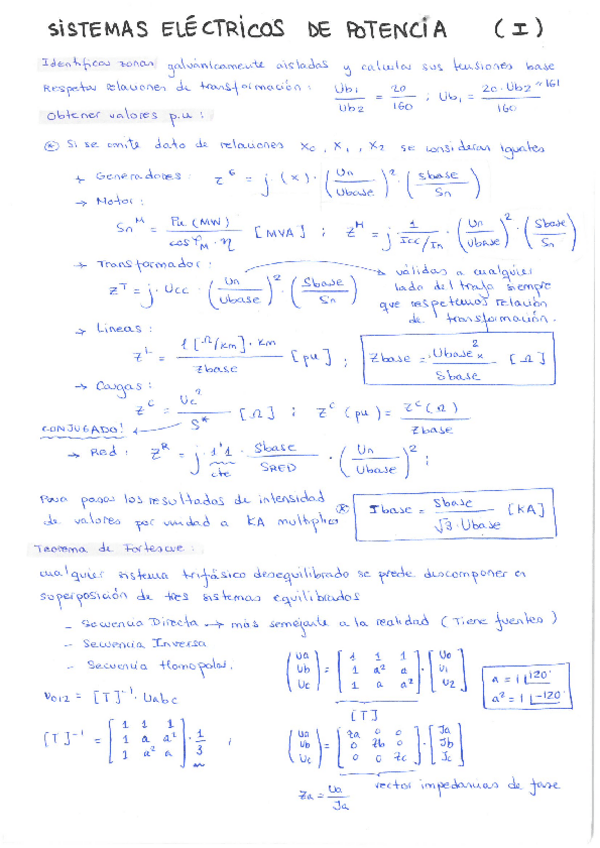 SISTEMAS ELÉCTRICOS DE POTENCIA (I)
Identificar zonas galvánicamente aisladas y calcular sus tensiones base
Respetar relaciones de transformación: Ub1/Ub2 = 20/160 ; Ub1 = 20·Ub2/160
Obtener valores p.u:
* Si se omite dato de relaciones X0, X1, X2 se consideran iguales
+ Generadores: Z^G = j (x) · (Un/Ubase)^2 · (Sbase/Sn)
→ Motor:
Sn^M = Pu (MW)/cos φM · η [MVA] ; Z^M = j · 1/(Icc/In) · (Un/Ubase)^2 · (Sbase/Sn)
→ Transformador:
Z^T = j· Ucc · (Un/Ubase)^2 · (Sbase/Sn)
válidas a cualquier
lado del trafo siempre
que respetemos relación
de transformación.
→ Lineas:
Z^L = 1 [Ω/km] · km / Zbase [pu] ; Zbase = Ubase^2/Sbase [Ω]
→ Cargas:
Z^C = Uc^2/S* [Ω] ; Z^C (pu) = Z^C(Ω)/Zbase
CONJUGADO!
→ Red: Z^R = j · 1'1 · Sbase/SRED · (Un/Ubase)^2 ;
cte
Para pasar los resultados de intensidad
de valores por unidad a KA multiplicar * Ibase = Sbase/√3·Ubase [KA]
Teorema de Fortescue:
cualquier sistema trifásico desequilibrado se puede descomponer en
superposición de tres sistemas equilibrados
- Secuencia Directa → más semejante a la realidad (Tiene fuentes)
- Secuencia Inversa
- Secuencia Homopolar.
(Ua Ub Uc) = [1 1 1; 1 a² a; 1 a a²] · [U0 U1 U2]
[T]
a = 1∠120°
a² = 1∠-120°
U012 = [T]^-1 · Uabc
[T]^-1 = [1 1 1; 1 a a²; 1 a² a] · 1/3 ;
(Ua Ub Uc) = [Za 0 0; 0 Zb 0; 0 0 Zc] · [Ia Ib Ic]
vector impedancias de fase
Za = Ua/Ia